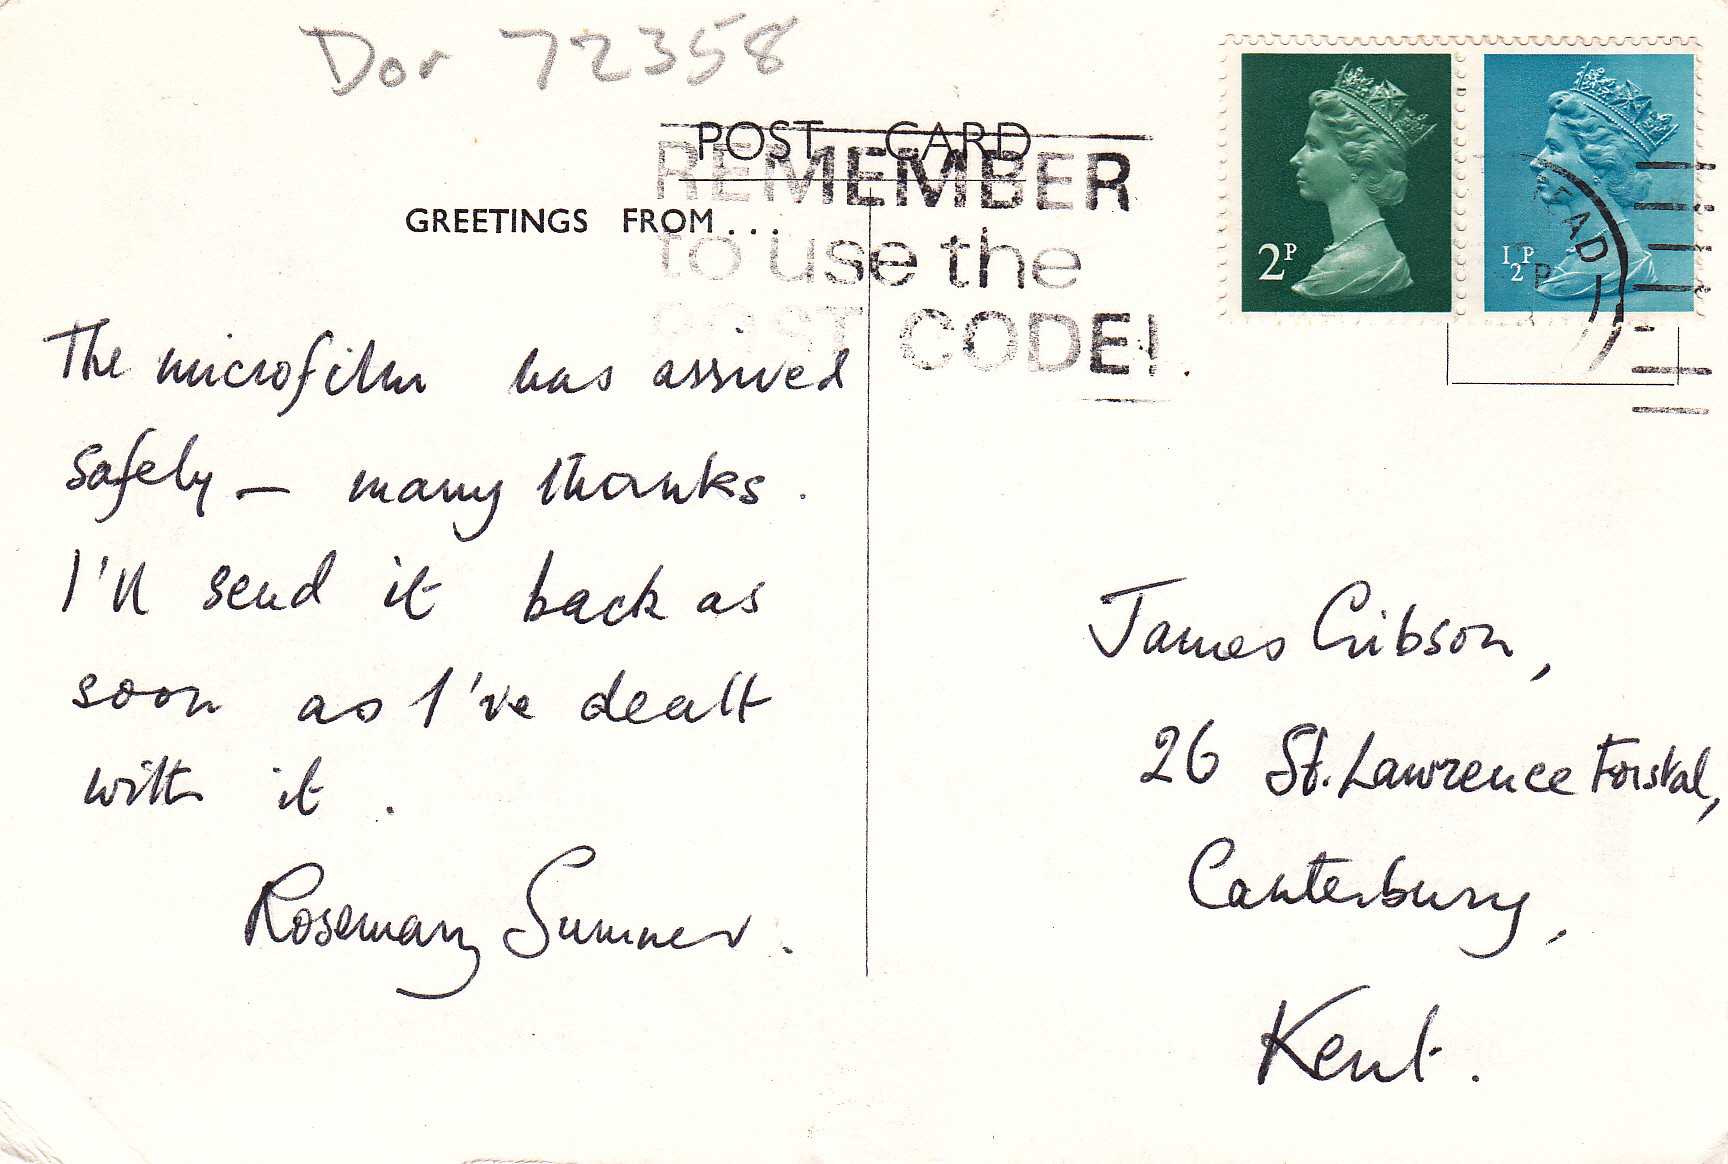 Dor 72358
POST CARD
REMEMBER
to use the
POST CODE!
GREETINGS FROM...
2P
½P
EAD
The microfilm has arrived
safely – many thanks.
I'll send it back as
soon as I've dealt
with it.
Rosemary Sumner.
James Gibson,
26 St. Lawrence Forstal,
Canterbury,
Kent.